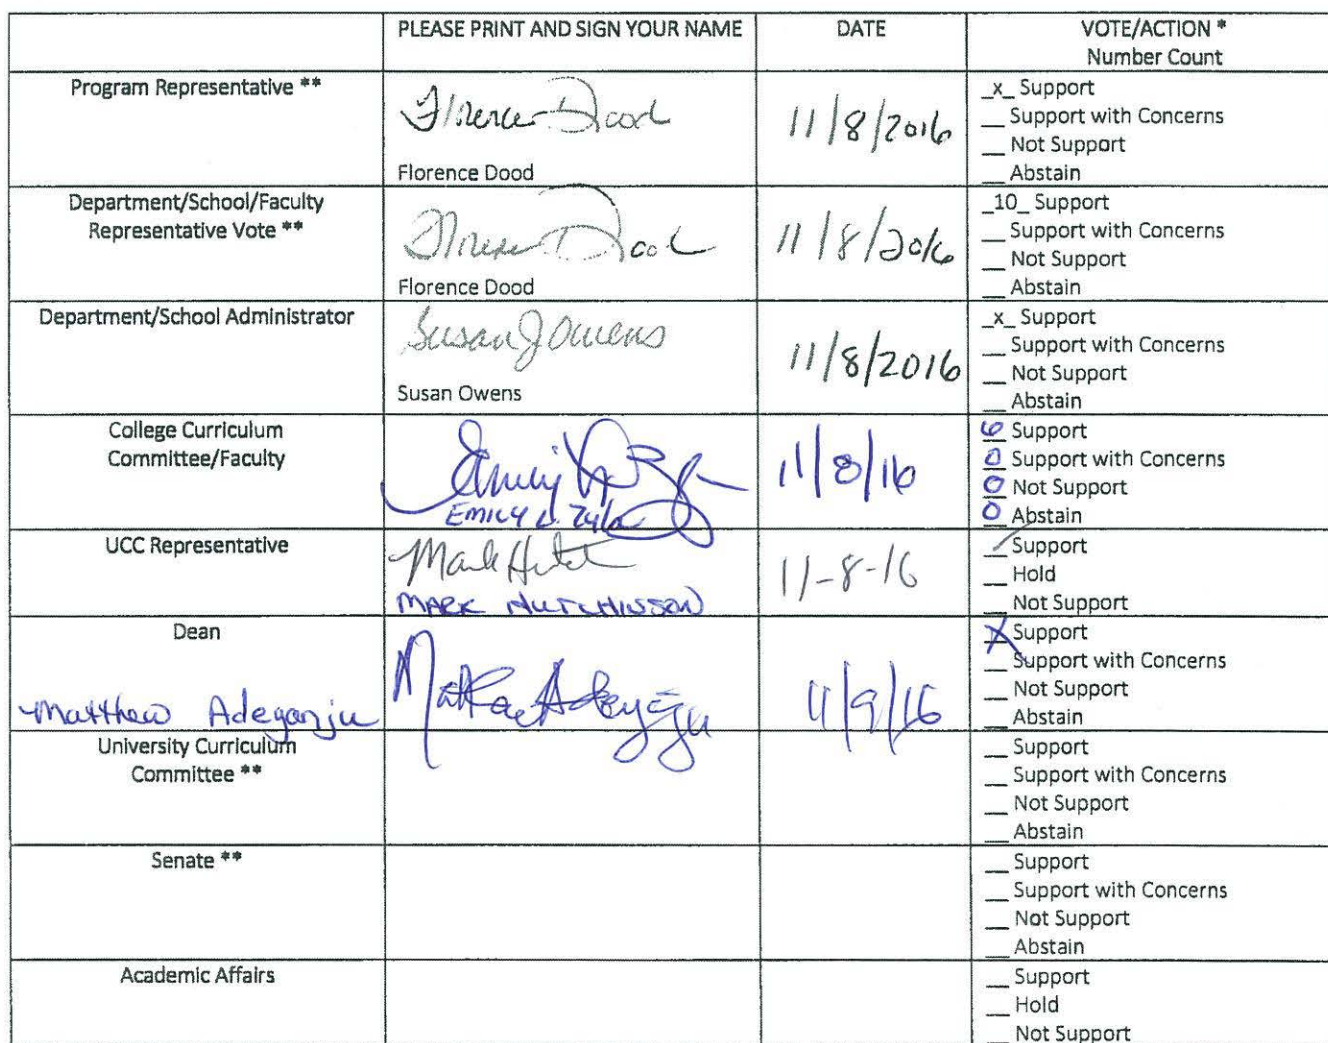 PLEASE PRINT AND SIGN YOUR NAME
DATE
VOTE/ACTION *
Number Count
Program Representative **
Florence Dood
11/8/2016
Florence Dood
_x_ Support
__ Support with Concerns
__ Not Support
__ Abstain
Department/School/Faculty
Representative Vote **
Florence Dood
11/8/2016
Florence Dood
_10_ Support
__ Support with Concerns
__ Not Support
__ Abstain
Department/School Administrator
Susan J Owens
11/8/2016
Susan Owens
_x_ Support
__ Support with Concerns
__ Not Support
__ Abstain
College Curriculum
Committee/Faculty
Emily
EMILY
11/8/16
6 Support
0 Support with Concerns
0 Not Support
0 Abstain
UCC Representative
Mark
MARK HUTCHINSON
11-8-16
__ Support
__ Hold
__ Not Support
Dean
Matthew Adeyanju
Matthew Adeyanju
11/9/16
X Support
__ Support with Concerns
__ Not Support
__ Abstain
University Curriculum
Committee **
__ Support
__ Support with Concerns
__ Not Support
__ Abstain
Senate **
__ Support
__ Support with Concerns
__ Not Support
__ Abstain
Academic Affairs
__ Support
__ Hold
__ Not Support